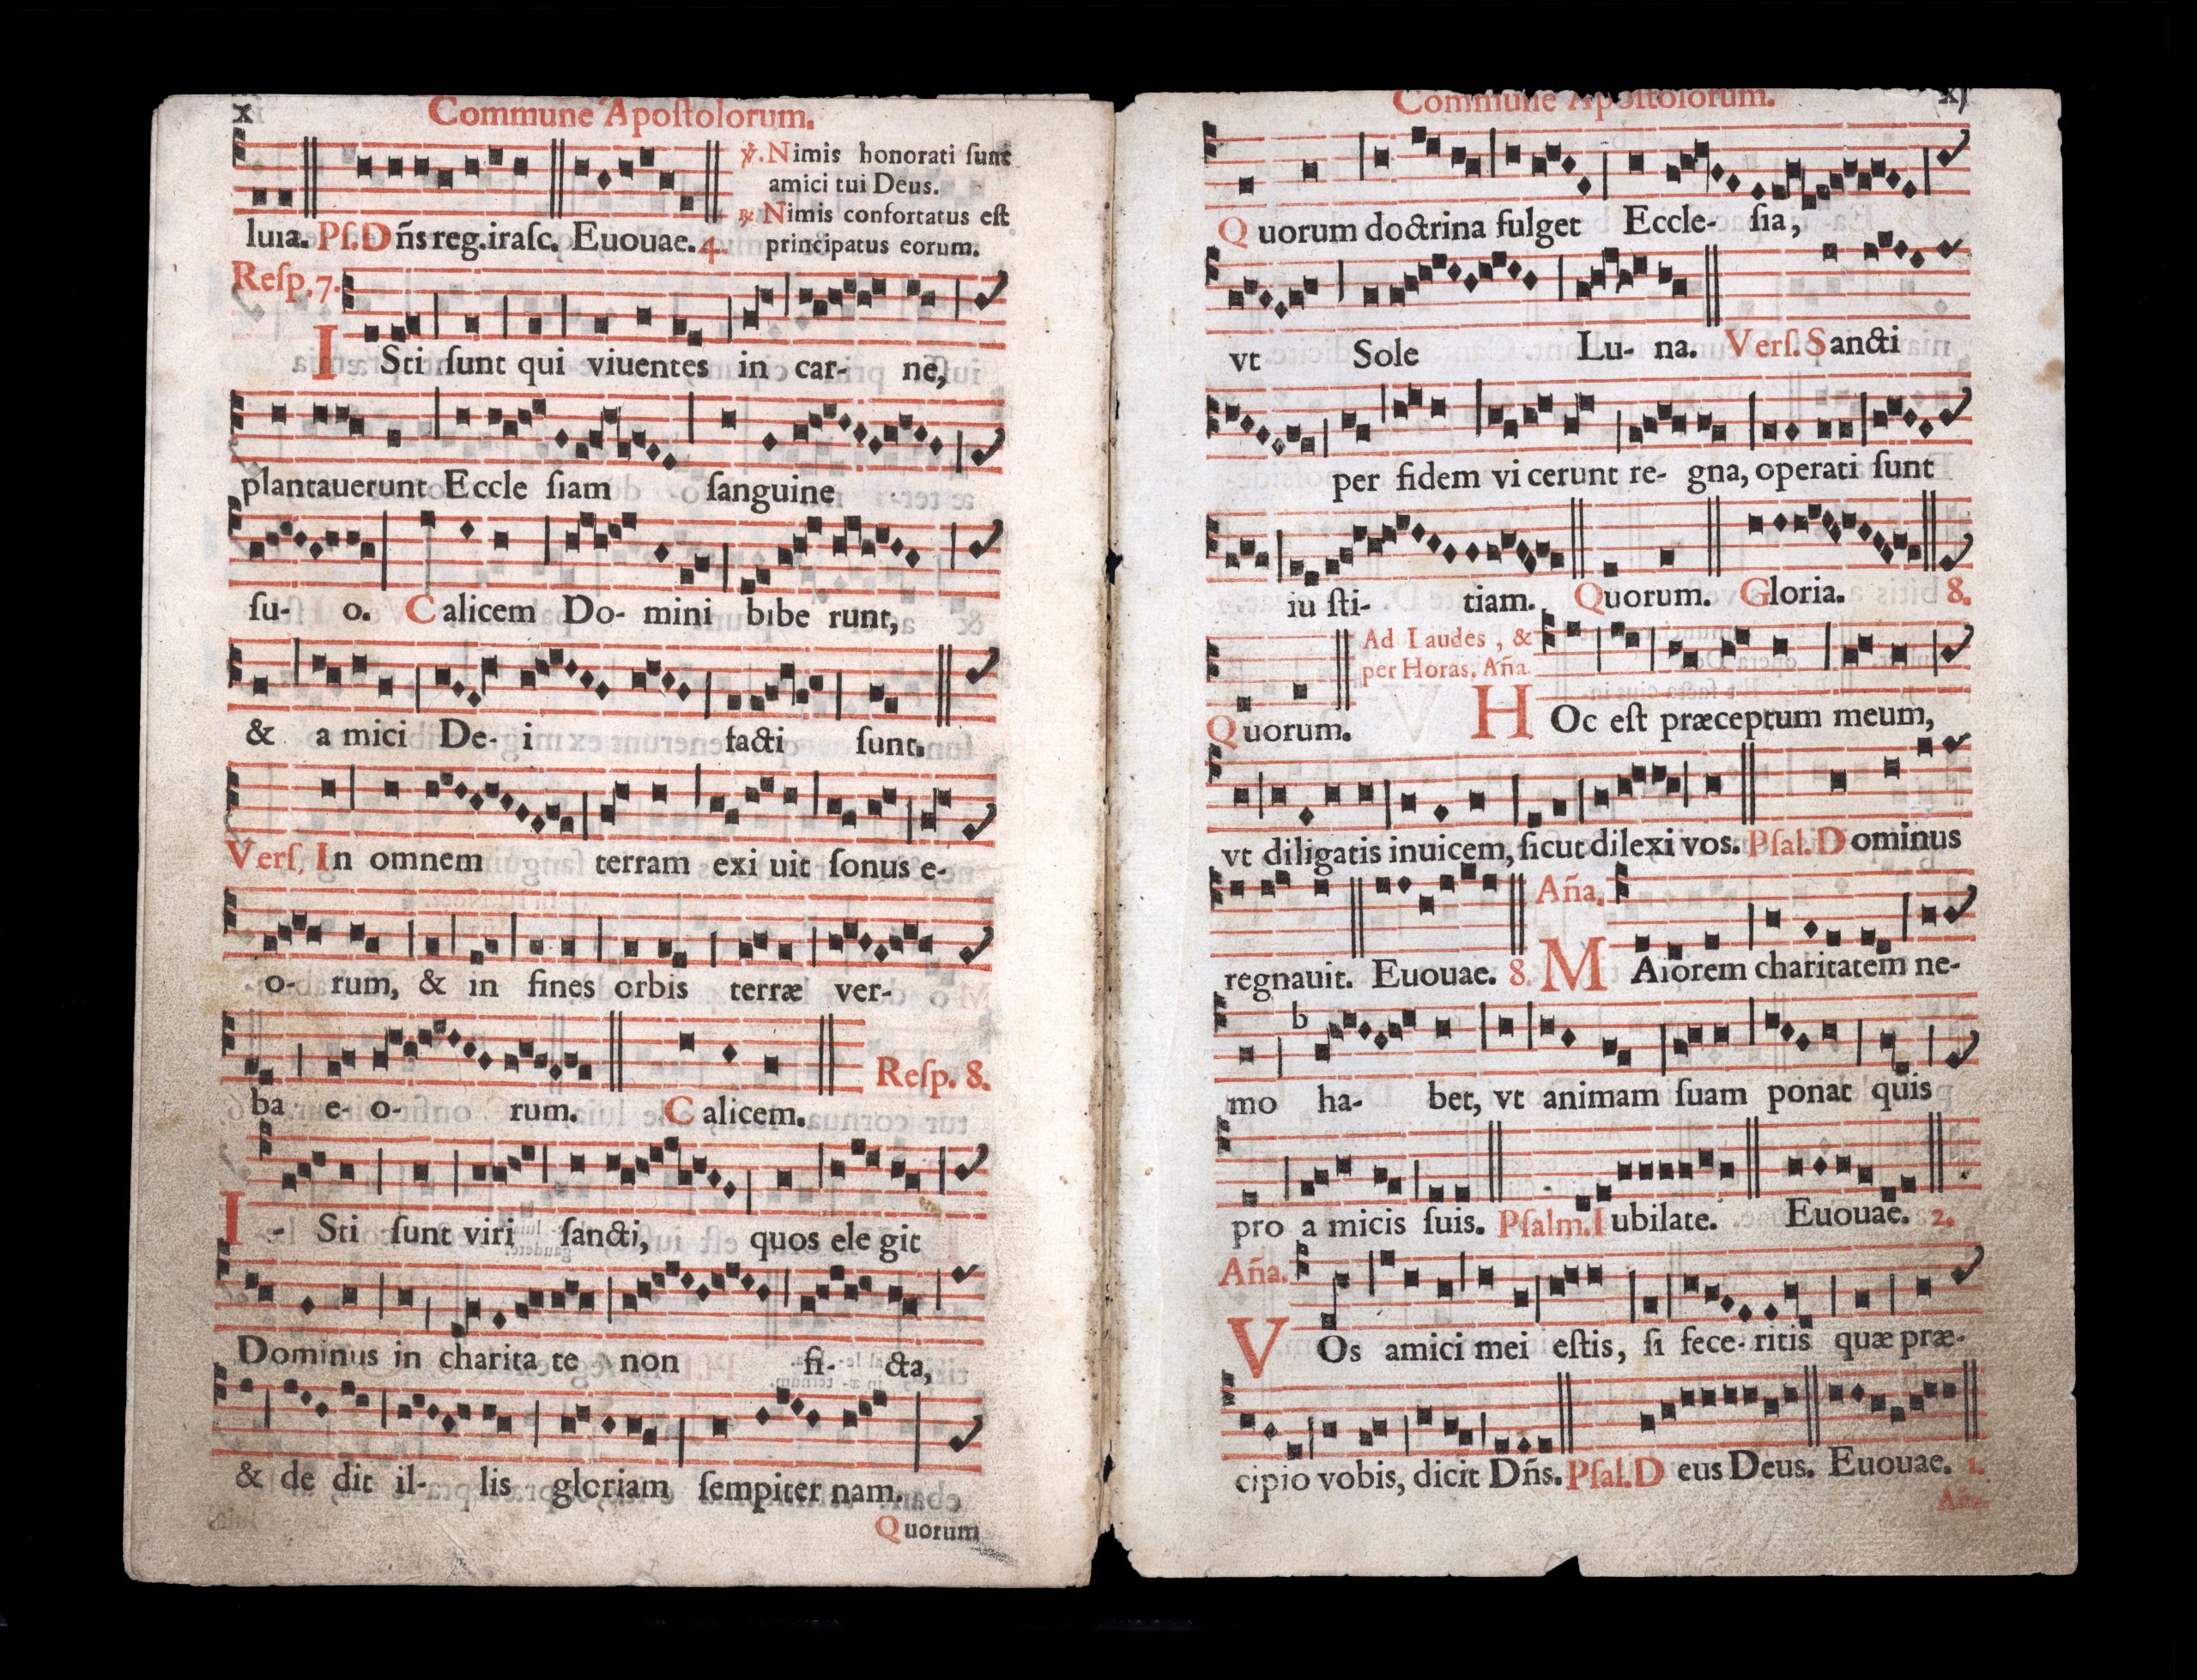 x
Commune Apoſtolorum.
℣. Nimis honorati ſunt
amici tui Deus.
℟ Nimis confortatus eſt
principatus eorum.
luia. Pſ. Dñs reg. iraſc. Euouae. 4.
Reſp. 7.
I Sti ſunt qui viuentes in car- ne,
plantauerunt Eccle ſiam ſanguine
ſu- o. Calicem Do- mini bibe runt,
& a mici De- i facti ſunt.
Verſ. In omnem terram exi uit ſonus e-
o- rum, & in fines orbis terræ ver-
ba e- o- rum. Calicem. Reſp. 8.
I - Sti ſunt viri ſancti, quos ele git
Dominus in charita te non fi- cta,
& de dit il- lis gloriam ſempiter nam.
Quorum
Commune Apoſtolorum.
xj
Quorum doctrina fulget Eccle- ſia,
vt Sole Lu- na. Verſ. Sancti
per fidem vi cerunt re- gna, operati ſunt
iu ſti- tiam. Quorum. Gloria. 8.
Ad Laudes, &
per Horas. Aña
Quorum. H Oc eſt præceptum meum,
vt diligatis inuicem, ſicut dilexi vos. Pſal. Dominus
Aña.
regnauit. Euouae. 8. M Aiorem charitatem ne-
b
mo ha- bet, vt animam ſuam ponat quis
pro a micis ſuis. Pſalm. Iubilate. Euouae. 2.
Aña.
V Os amici mei eſtis, ſi fece- ritis quæ præ-
cipio vobis, dicit Dñs. Pſal. D eus Deus. Euouae. 1.
Aña.